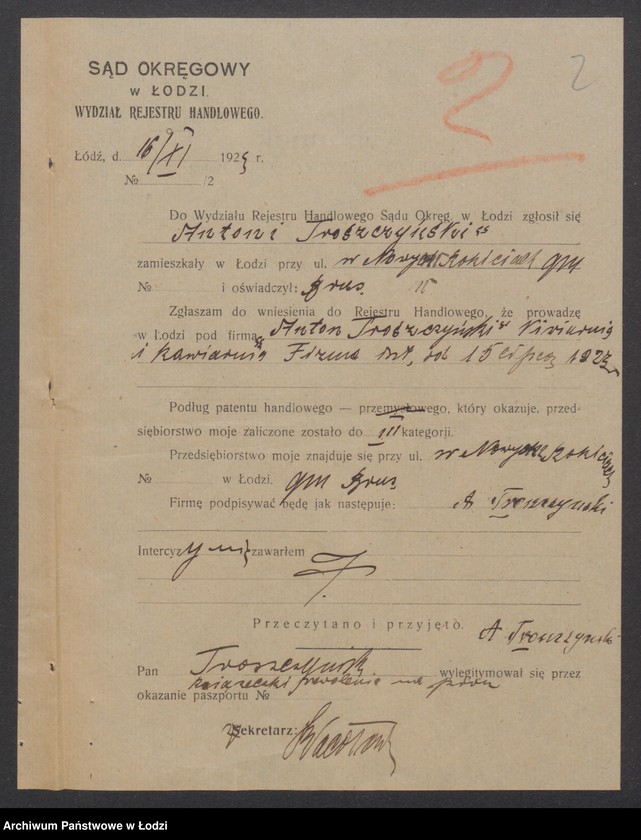 2 2
SĄD OKRĘGOWY
w ŁODZI.
WYDZIAŁ REJESTRU HANDLOWEGO.
Łódź, d. 16/XI 1925 r.
№ /2
Do Wydziału Rejestru Handlowego Sądu Okręg. w Łodzi zgłosił się
Antoni Troszczyński
zamieszkały w Łodzi przy ul. w Nowych Rokiciach gm
№ i oświadczył: Brus
Zgłaszam do wniesienia do Rejestru Handlowego, że prowadzę
w Łodzi pod firmą „Anton Troszczyński" Piwiarnia
i kawiarnia Firma ist. od 15 lipca 1923
Podług patentu handlowego — przemysłowego, który okazuje, przed-
siębiorstwo moje zaliczone zostało do III kategorji.
Przedsiębiorstwo moje znajduje się przy ul. w Nowych Rokiciach
№ w Łodzi. gm Brus
Firmę podpisywać będę jak następuje: A Troszczynski
Intercyzy nie zawarłem
Przeczytano i przyjęto.
A Troszczynski
Pan Troszczyński wylegitymował się przez
książeczki zwolenia na
okazanie paszportu №
Sekretarz:
Archiwum Państwowe w Łodzi